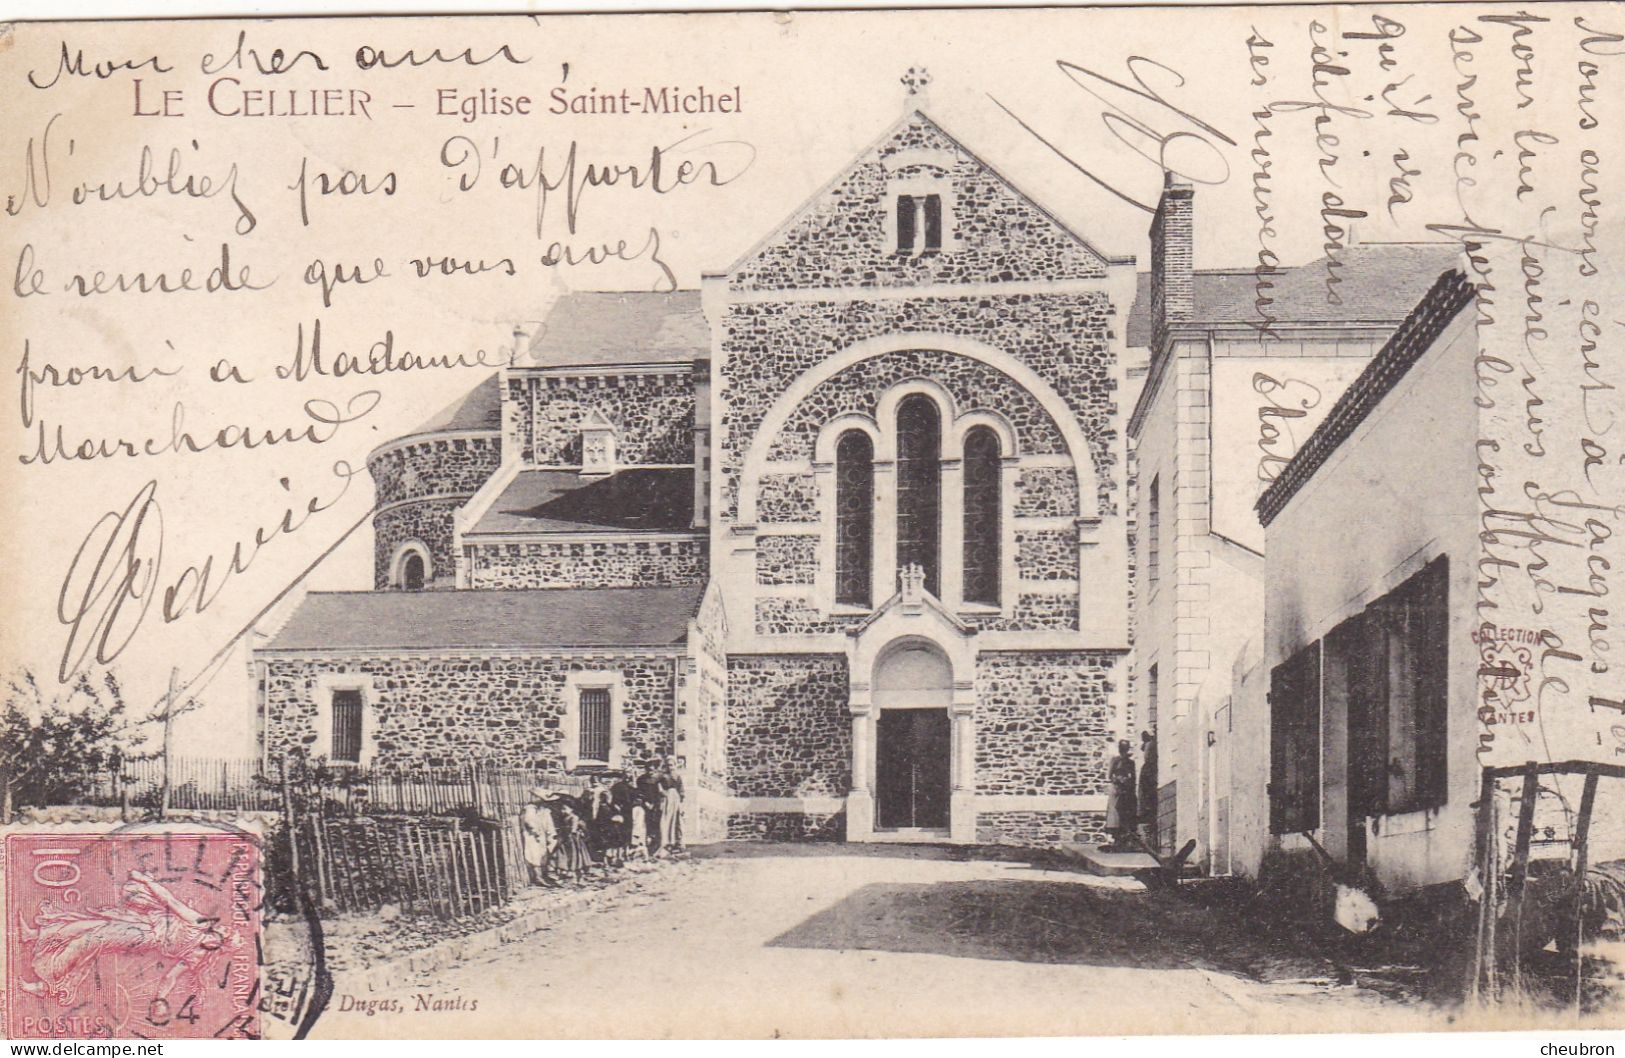 Mon cher ami,
LE CELLIER – Eglise Saint-Michel
N'oubliez pas d'apporter
le remède que vous avez
promi a Madame
Marchand.
David
Nous avons écrit à Jacques 1er
pour lui faire nos offres de
service pour les constructions
qu'il va
édifier dans
ses nouveaux Etats
COLLECTION
NANTES
10c
POSTES
CELLIER
3
04
Dugas, Nantes
cheubron.com